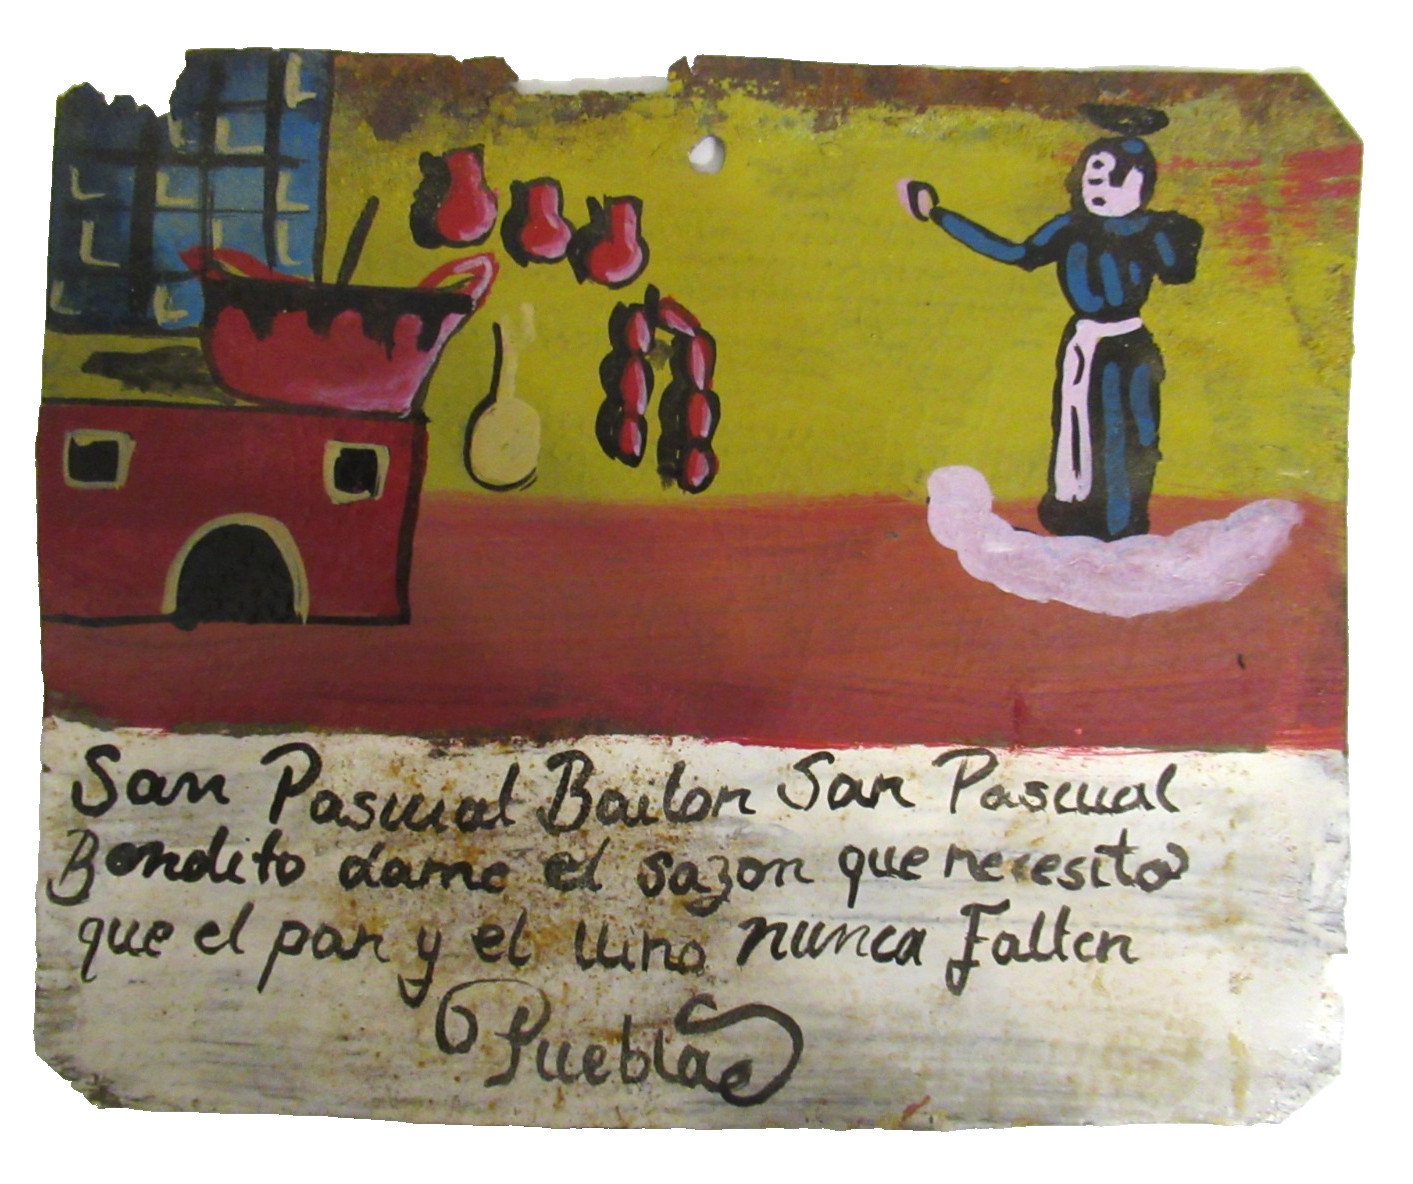 San Pascual Bailon San Pascual
Bendito dame el sazon que necesito
que el pan y el vino nunca Falten
Puebla